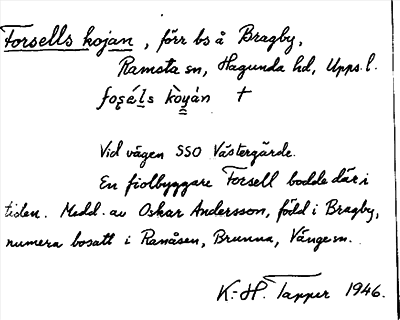 Forsells kojan, förr bs å Bragby,
Ramsta sn, Hagunda hd, Upps. l.
foşé́ls kòyàn †
Vid vägen SSO Västergärde.
En fiolbyggare Forsell bodde där i
tiden. Medd. av Oskar Andersson, född i Bragby,
numera bosatt i Ramåsen, Brunna, Vänge sn.
K.-H. Tapper 1946.